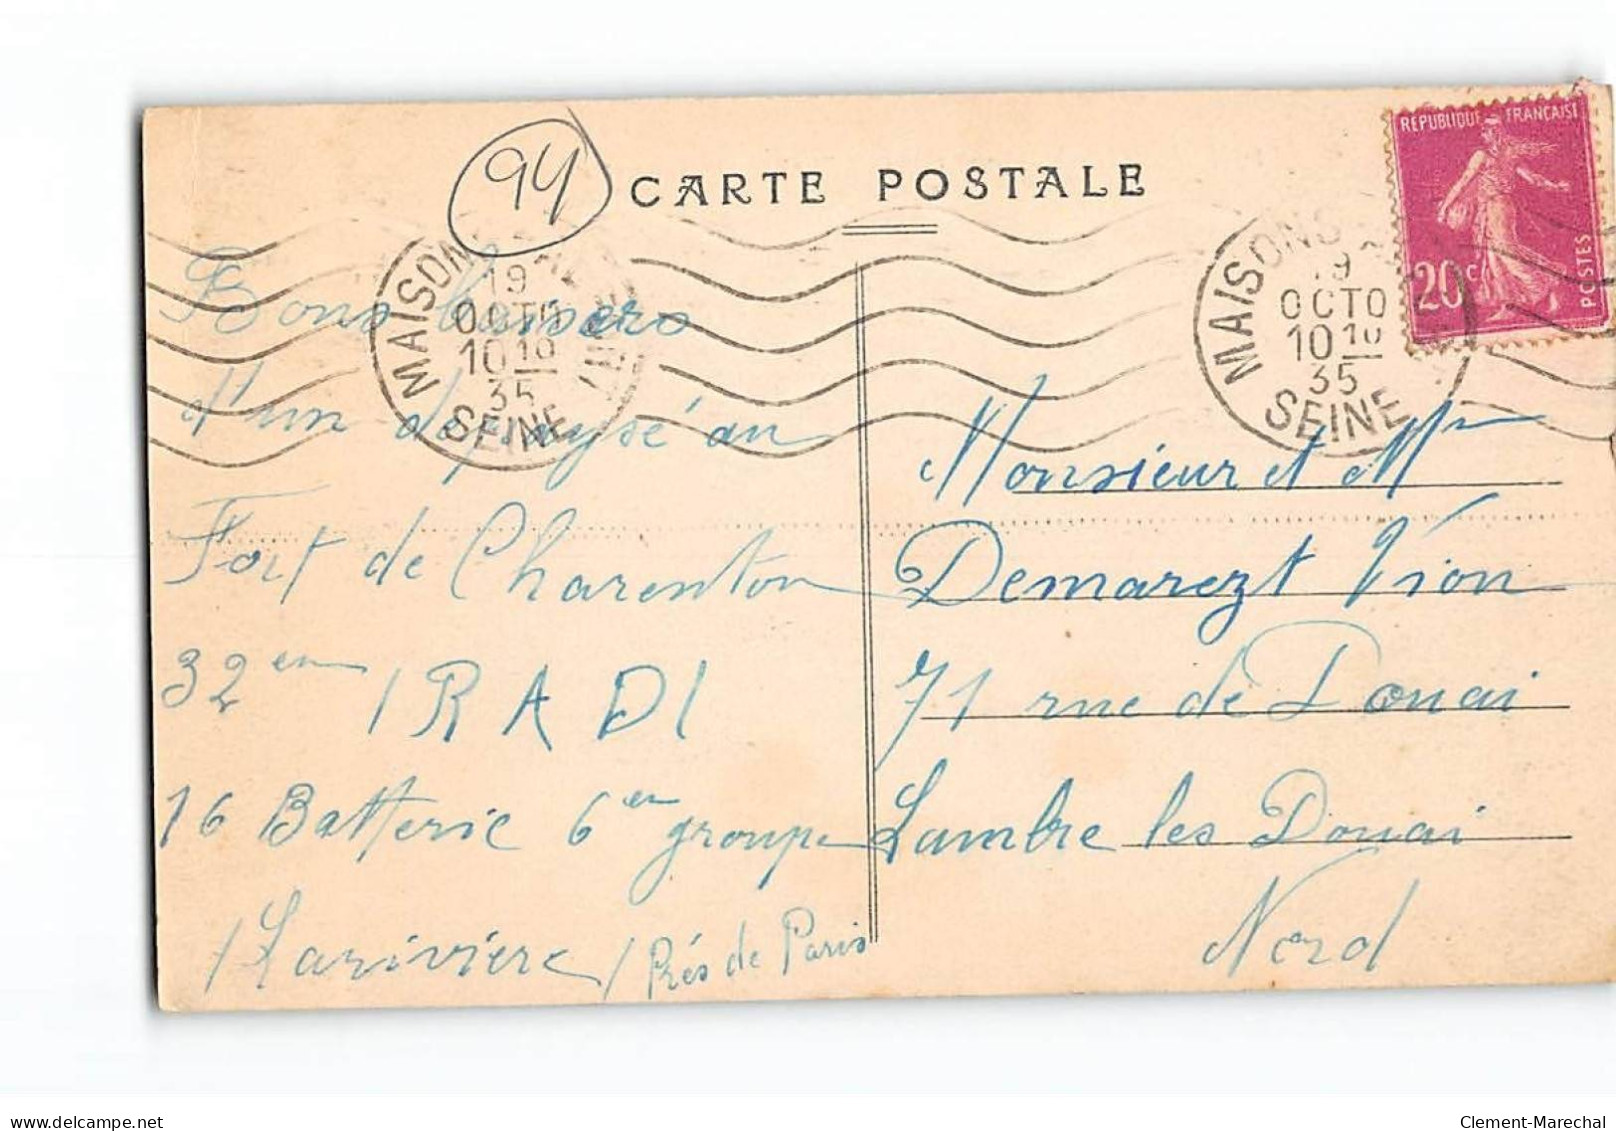 94
CARTE POSTALE
REPUBLIQUE FRANÇAISE
20 c
POSTES
MAISONS
19
OCTO
10 10
35
SEINE
MAISONS
19
OCTO
10 10
35
SEINE
Bons baisers
d'un dépaysé au
Fort de Charenton
32 em / R A D /
16 Batterie 6 em groupe
/ Larivière / Près de Paris
Monsieur et Mm
Demarezt Vion
71 rue de Douai
Lambre les Douai
Nord
delcampe.net
Clement-Marechal